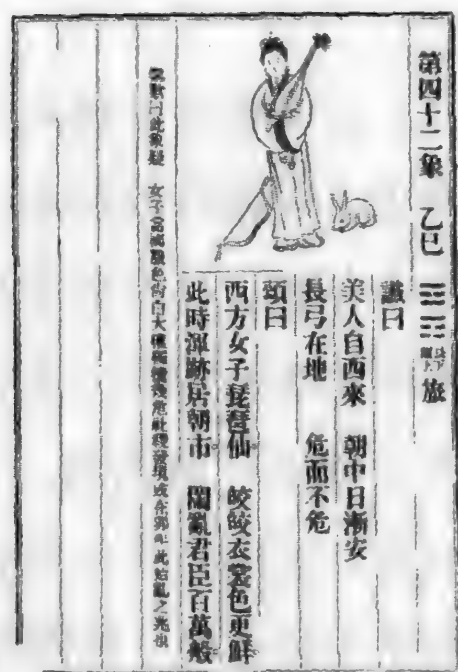 第四十二象 乙巳 ䷷ 艮下離上 旅
讖曰
美人自西來 朝中日漸安
長弓在地 危而不危
頌曰
西方女子琵琶仙 皎皎衣裳色更鮮
此時渾跡居朝市 鬧亂君臣百萬般
曰此象疑 女子當國服色尚白大權獨攬幾危社稷發現或在卯年此始亂之兆也